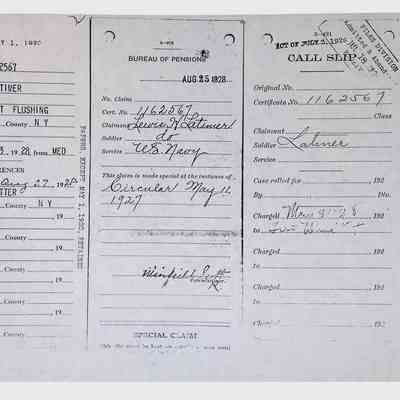 Y 1, 1920
2567
TIMER
T FLUSHING
County N Y
, 19
3, 1928 from MED
ERENCES
Aug 27, 1928
TTER
County N Y
, 19
County
, 19
County
, 19
County
, 19
County
, 19
3-498
BUREAU OF PENSIONS
AUG 25 1928
No. Claims
Cert. No. 1162567
Claimant Lewis H Latimer
Soldier do
Service U.S. Navy
This claim is made special at the instance of
Circular May 11,
1927
Winfield Scott
Commissioner.
SPECIAL CLAIM
3-431
ACT OF JULY 3, 1926
FILES DIVISION
CALL SLIP
Original No.
Certificate No. 1162567
Class
Claimant
Soldier Latimer
Service
Case rolled for , 192
By Div.
Charged May 3 28
to
Charged , 192
to
Charged , 192
to
Charged , 192
to
Charged , 192